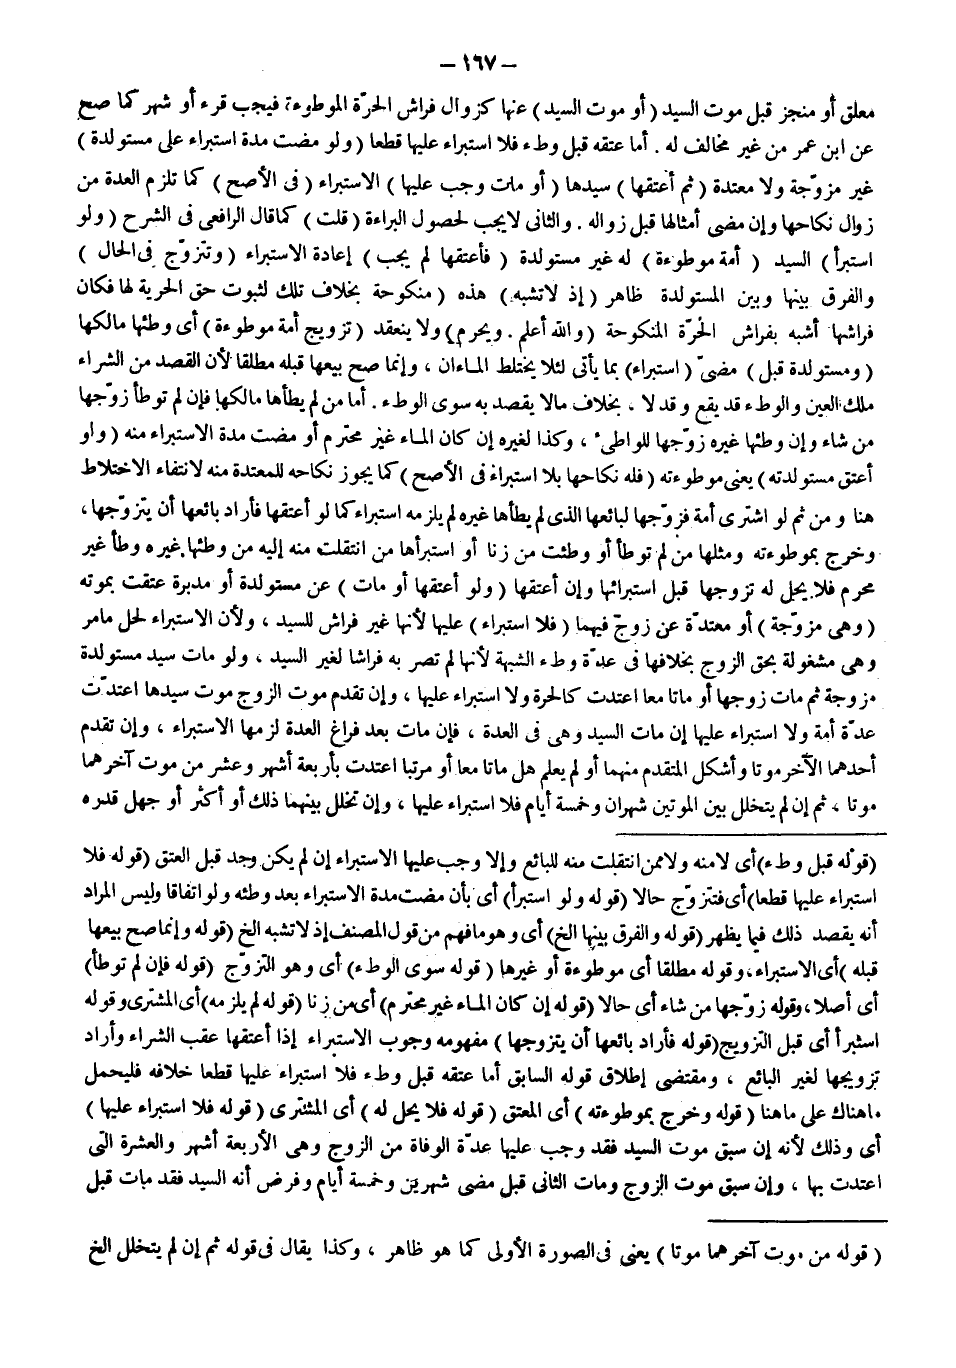 – ١٦٧ –
معلق أو منجز قبل موت السيد ( أو موت السيد ) عنها كزوال فراش الحرّة الموطوءة فيجب قرء أو شهر كما صح
عن ابن عمر من غير مخالف له . أما عتقه قبل وطء فلا استبراء عليها قطعا ( ولو مضت مدة استبراء على مستولدة )
غير مزوّجة ولا معتدة ( ثم أعتقها ) سيدها ( أو مات وجب عليها ) الاستبراء ( فى الأصح ) كما تلزم العدة من
زوال نكاحها وإن مضى أمثالها قبل زواله . والثانى لايجب لحصول البراءة ( قلت ) كماقال الرافعى فى الشرح ( ولو
استبرأ ) السيد ( أمة موطوءة ) له غير مستولدة ( فأعتقها لم يجب ) إعادة الاستبراء ( وتتزوّج فى الحال )
والفرق بينها وبين المستولدة ظاهر ( إذ لاتشبه ) هذه ( منكوحة بخلاف تلك لثبوت حق الحرية لها فكان
فراشها أشبه بفراش الحرّة المنكوحة ( والله أعلم . ويحرم ) ولا ينعقد ( تزويج أمة موطوءة ) أى وطئها مالكها
( ومستولدة قبل ) مضىّ ( استبراء ) بما يأتى لئلا يختلط الماءان ، وإنما صح بيعها قبله مطلقا لأن القصد من الشراء
ملك العين والوطء قد يقع وقد لا ، بخلاف مالا يقصد به سوى الوطء . أما من لم يطأها مالكها فإن لم توطأ زوّجها
من شاء وإن وطئها غيره زوّجها للواطىء ، وكذا لغيره إن كان الماء غير محترم أو مضت مدة الاستبراء منه ( ولو
أعتق مستولدته ) يعنى موطوءته ( فله نكاحها بلا استبراء فى الأصح ) كما يجوز نكاحه للمعتدة منه لانتفاء الاختلاط
هنا ومن ثم لو اشترى أمة فزوّجها لبائعها الذى لم يطأها غيره لم يلزمه استبراء كما لو أعتقها فأراد بائعها أن يتزوّجها ،
وخرج بموطوءته ومثلها من لم توطأ أو وطئت من زنا أو استبرأها من انتقلت منه إليه من وطئها غيره وطأ غير
محرم فلا يحل له تزوجها قبل استبرائها وإن أعتقها ( ولو أعتقها أو مات ) عن مستولدة أو مدبرة عتقت بموته
( وهى مزوّجة ) أو معتدّة عن زوج فيهما ( فلا استبراء ) عليها لأنها غير فراش للسيد ، ولأن الاستبراء لحل مامر
وهى مشغولة بحق الزوج بخلافها فى عدّة وطء الشبهة لأنها لم تصر به فراشا لغير السيد ، ولو مات سيد مستولدة
مزوجة ثم مات زوجها أو ماتا معا اعتدت كالحرة ولا استبراء عليها ، وإن تقدم موت الزوج موت سيدها اعتدّت
عدّة أمة ولا استبراء عليها إن مات السيد وهى فى العدة ، فإن مات بعد فراغ العدة لزمها الاستبراء ، وإن تقدم
أحدهما الآخر موتا وأشكل المتقدم منهما أو لم يعلم هل ماتا معا أو مرتبا اعتدت بأربعة أشهر وعشر من موت آخرهما
موتا ، ثم إن لم يتخلل بين الموتين شهران وخمسة أيام فلا استبراء عليها ، وإن تخلل بينهما ذلك أو أكثر أو جهل قدره
(قوله قبل وطء) أى لامنه ولاممن انتقلت منه للبائع وإلا وجب عليها الاستبراء إن لم يكن وجد قبل العتق (قوله فلا
استبراء عليها قطعا) أى فتتزوّج حالا (قوله ولو استبرأ) أى بأن مضت مدة الاستبراء بعد وطئه ولو اتفاقا وليس المراد
أنه يقصد ذلك فيما يظهر (قوله والفرق بينها الخ) أى وهو مافهم من قول المصنف إذ لاتشبه الخ (قوله وإنما صح بيعها
قبله ) أى الاستبراء ، وقوله مطلقا أى موطوءة أو غيرها ( قوله سوى الوطء) أى وهو التزوّج (قوله فإن لم توطأ)
أى أصلا ، وقوله زوّجها من شاء أى حالا (قوله إن كان الماء غير محترم) أى من زنا (قوله لم يلزمه) أى المشترى وقوله
استبرأ أى قبل التزويج (قوله فأراد بائعها أن يتزوجها ) مفهومه وجوب الاستبراء إذا أعتقها عقب الشراء وأراد
تزويجها لغير البائع ، ومقتضى إطلاق قوله السابق أما عتقه قبل وطء فلا استبراء عليها قطعا خلافه فليحمل
ماهناك على ماهنا ( قوله وخرج بموطوءته ) أى المعتق ( قوله فلا يحل له ) أى المشترى ( قوله فلا استبراء عليها )
أى وذلك لأنه إن سبق موت السيد فقد وجب عليها عدّة الوفاة من الزوج وهى الأربعة أشهر والعشرة التى
اعتدت بها ، وإن سبق موت الزوج ومات الثانى قبل مضى شهرين وخمسة أيام وفرض أنه السيد فقد مات قبل
( قوله من موت آخرهما موتا ) يعنى فى الصورة الأولى كما هو ظاهر ، وكذا يقال فى قوله ثم إن لم يتخلل الخ